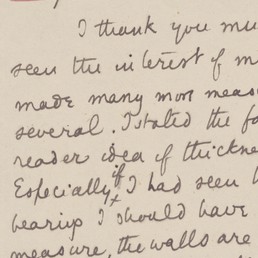 I thank you mu
seen the interest of m
made many more measu
several. I stated the fa
reader idea of thickne
Especially if I had seen
bearings I should have
measure, the walls are